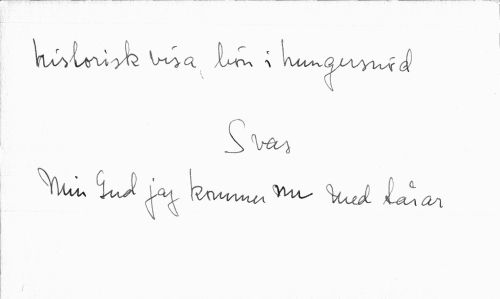 historisk visa, bön i hungersnöd
Svar
Min Gud jag kommer nu med tårar